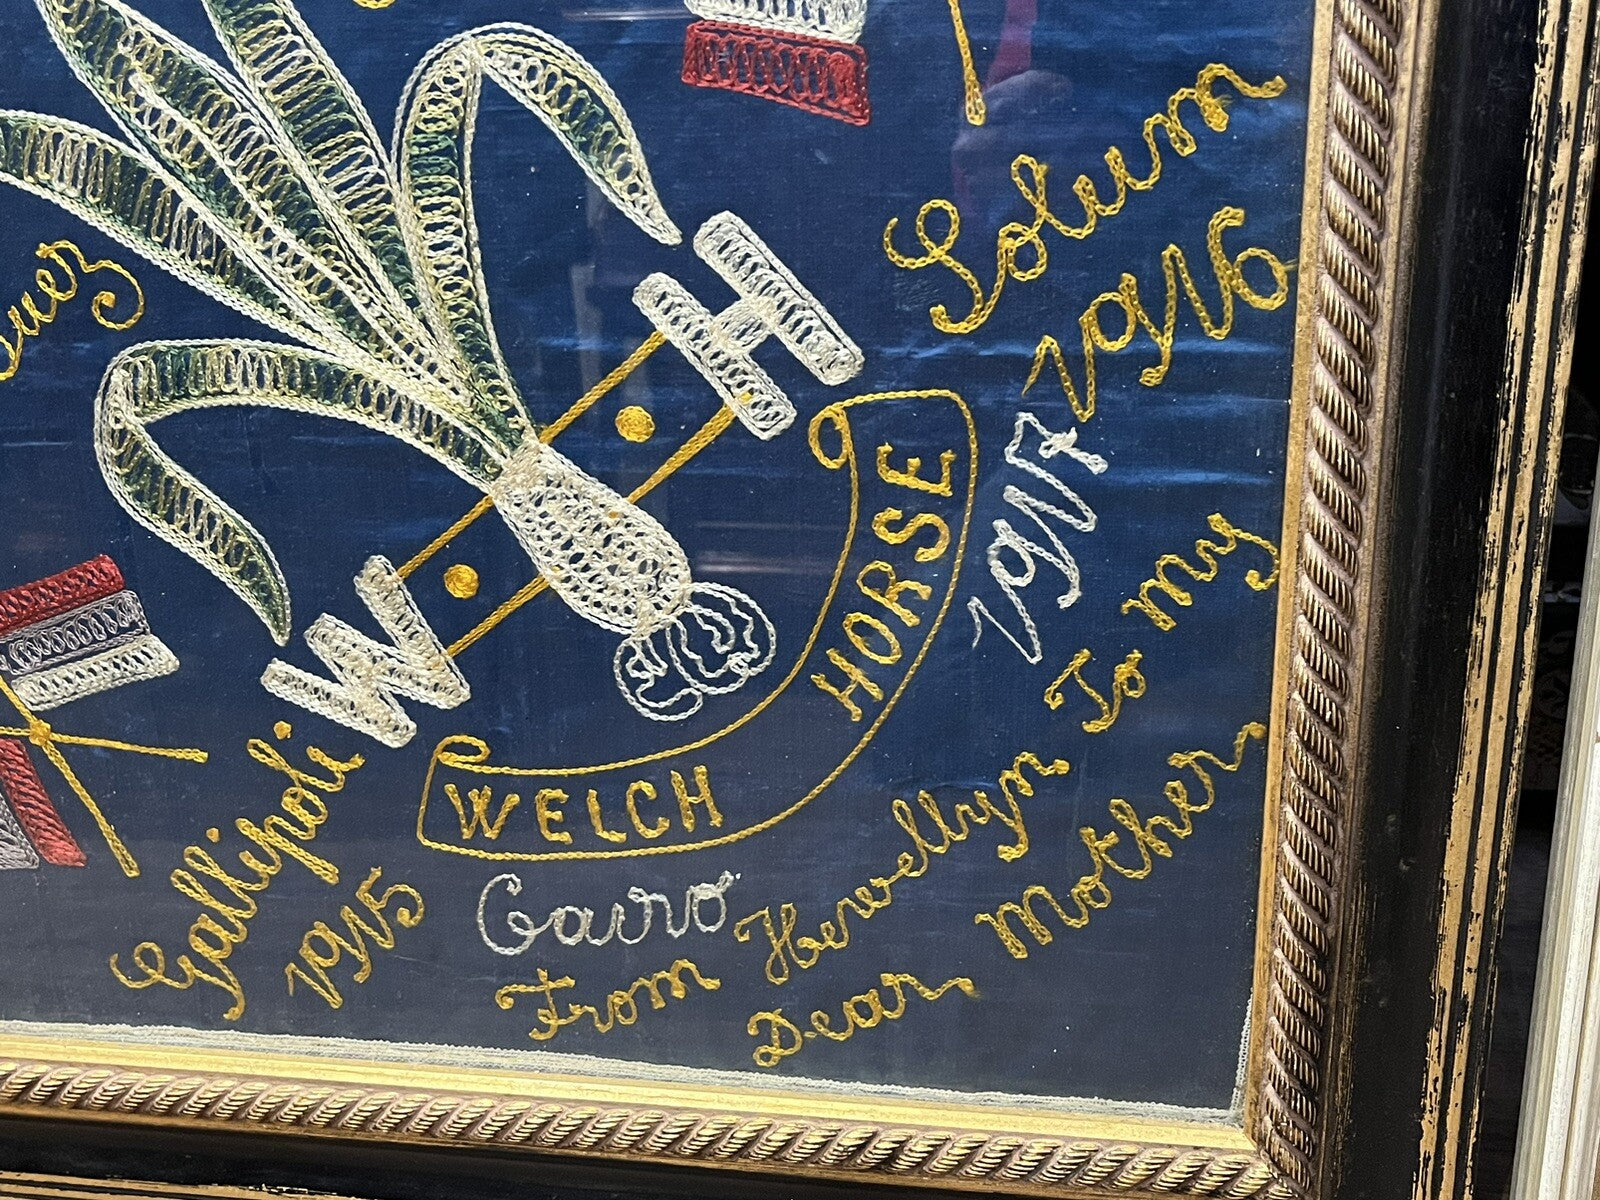 Solum
1916
1917
W H
WELCH HORSE
Gallipoli
1915
Cairo
From Hewellyn To my
Dear Mother